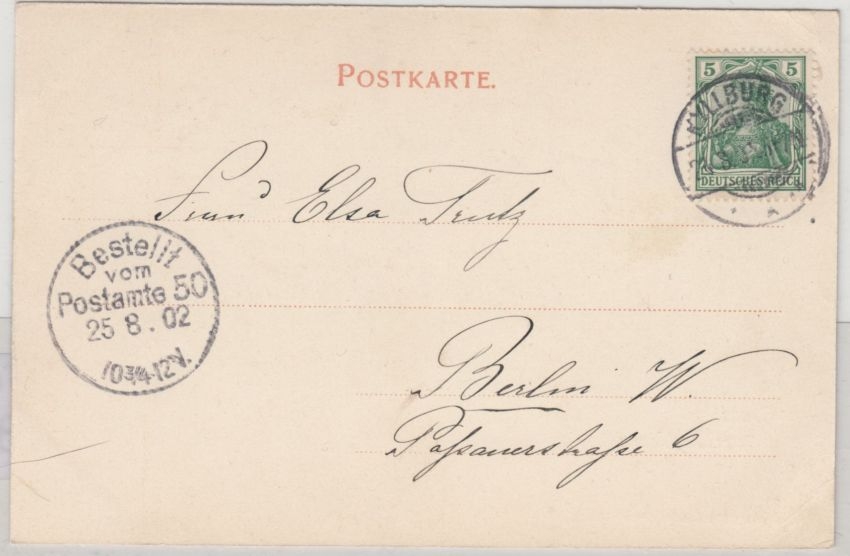 POSTKARTE.
5 5
KYLLBURG
DEUTSCHES REICH
Frau Elsa Trutz
Bestellt
vom
Postamte 50
25 8. 02
10 3/4-12 V.
Berlin W.
Passauerstraße 6